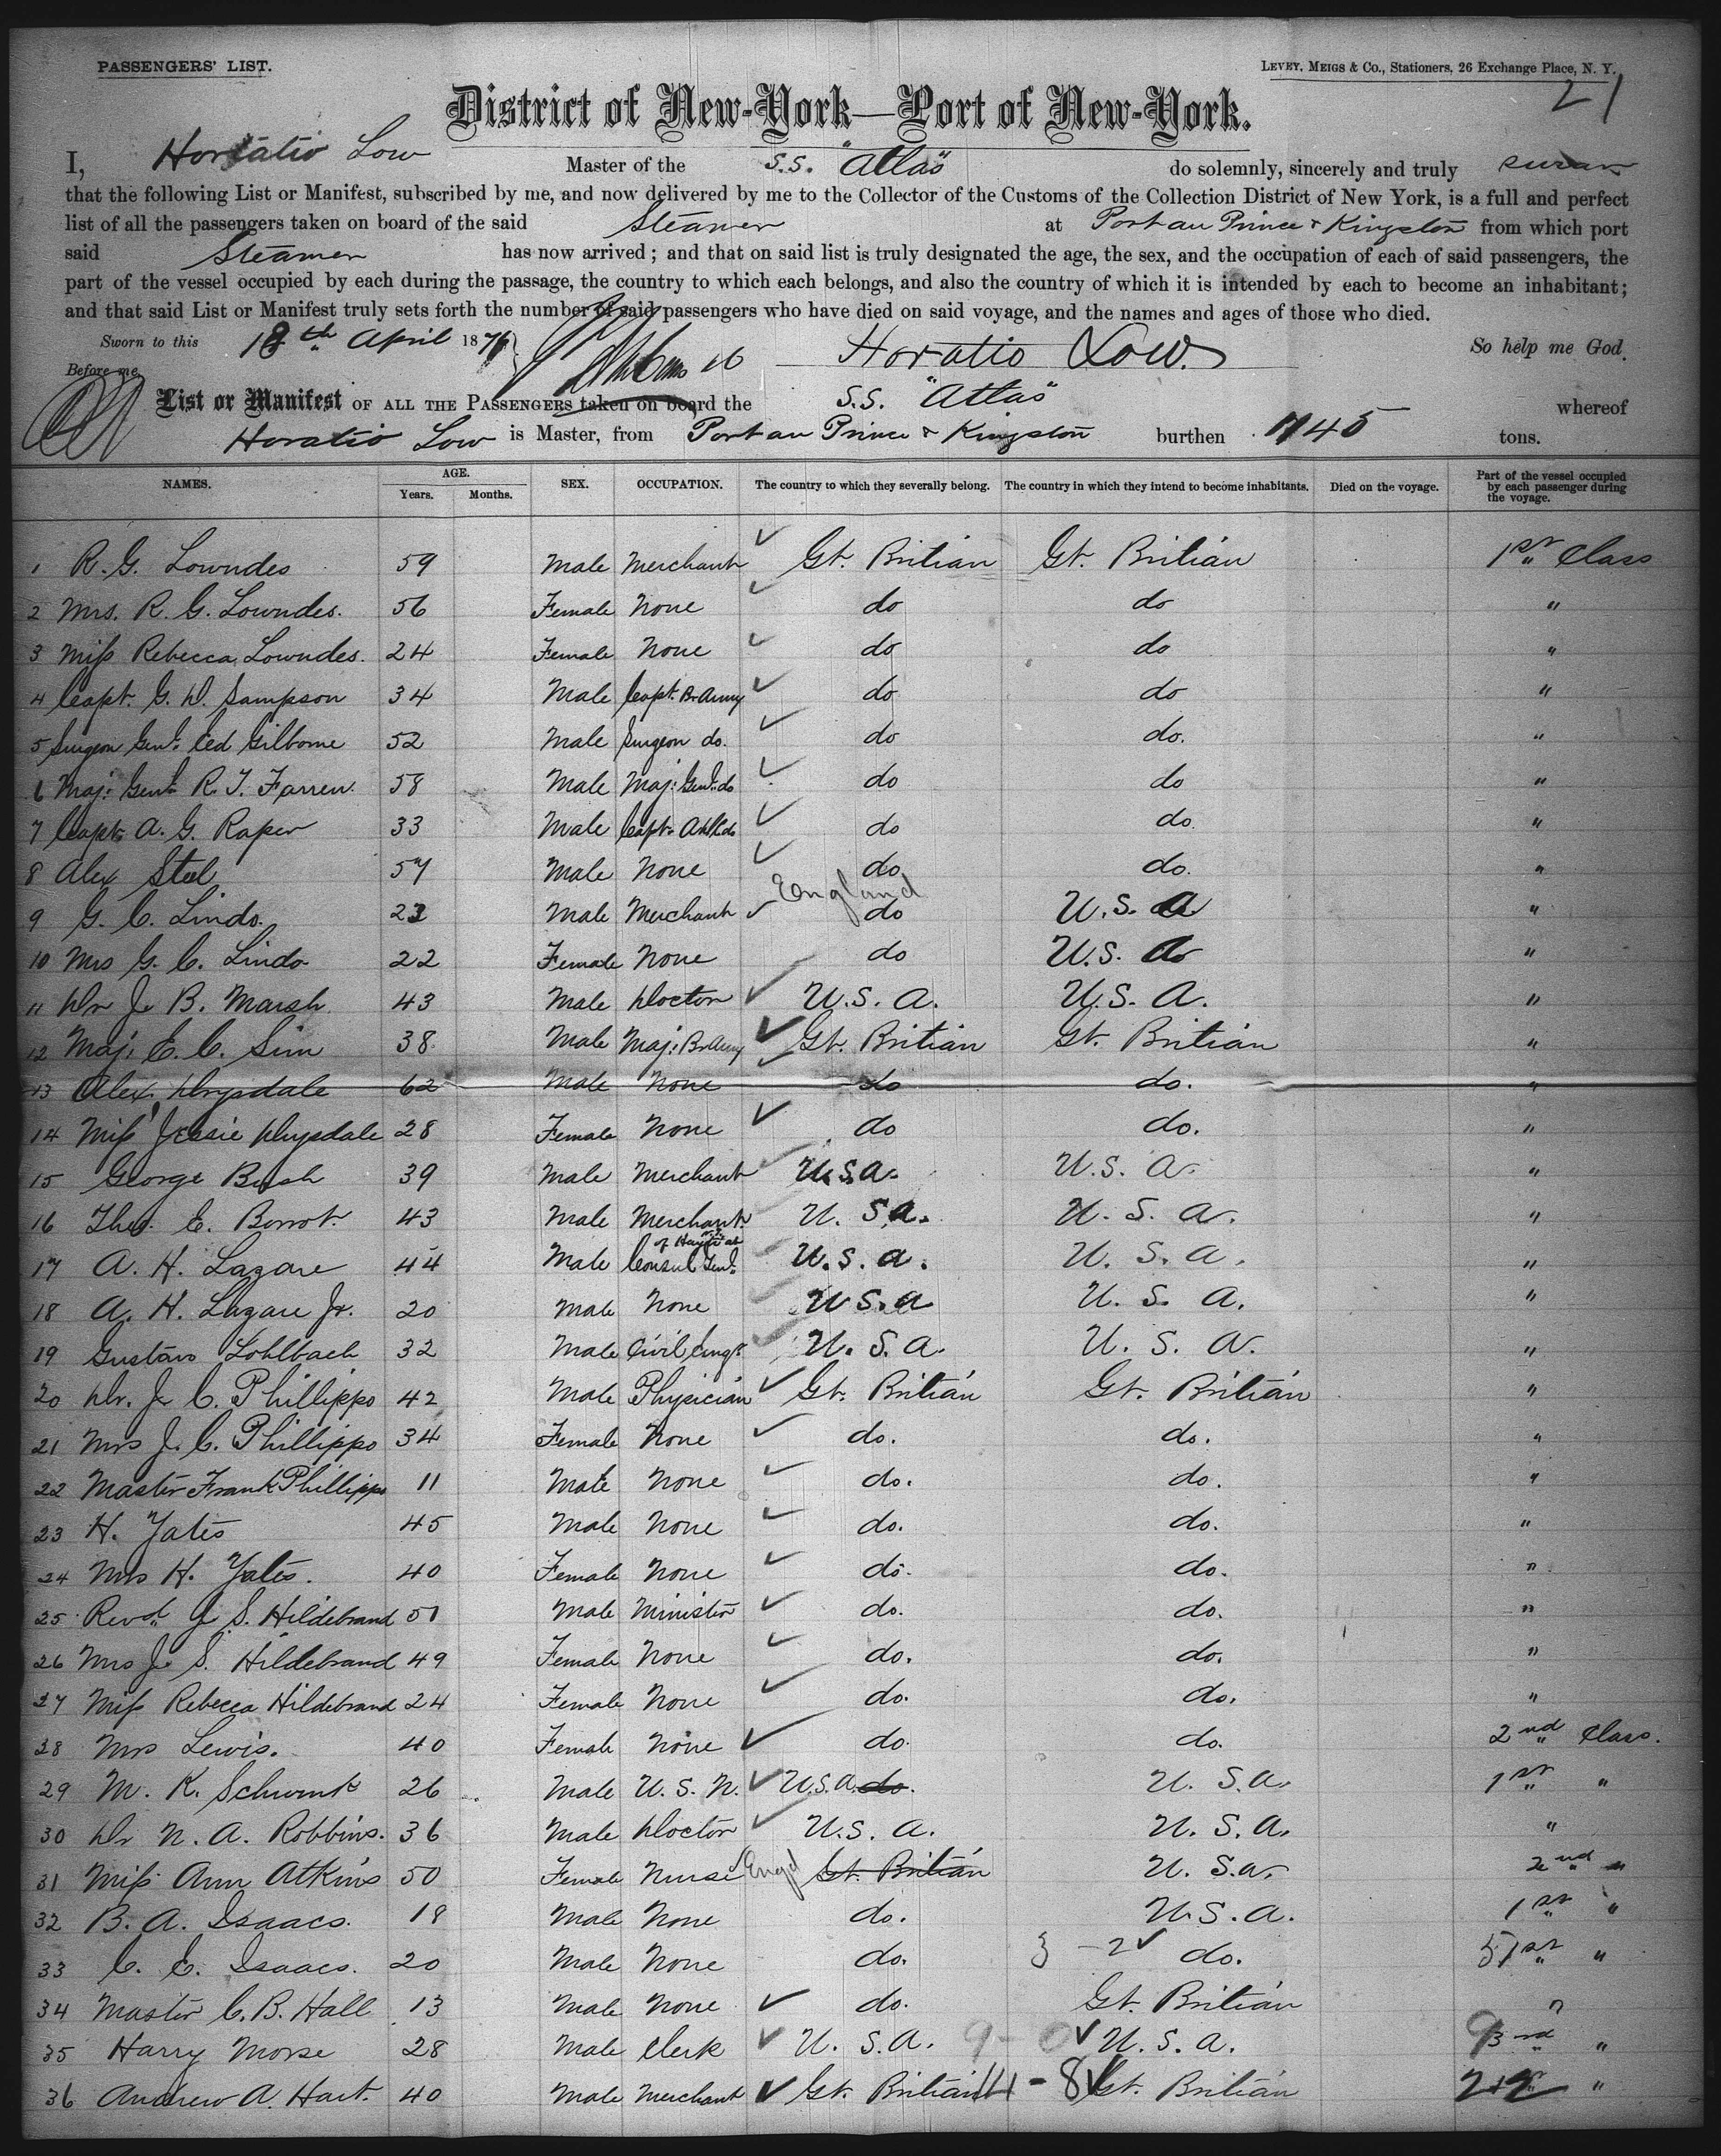 PASSENGERS' LIST.
LEVEY, MEIGS & Co., Stationers, 26 Exchange Place, N. Y.
21
District of New-York—Port of New-York.
I, Horatio Low Master of the S.S. "Atlas" do solemnly, sincerely and truly swear
that the following List or Manifest, subscribed by me, and now delivered by me to the Collector of the Customs of the Collection District of New York, is a full and perfect
list of all the passengers taken on board of the said Steamer at Port au Prince & Kingston from which port
said Steamer has now arrived; and that on said list is truly designated the age, the sex, and the occupation of each of said passengers, the
part of the vessel occupied by each during the passage, the country to which each belongs, and also the country of which it is intended by each to become an inhabitant;
and that said List or Manifest truly sets forth the number of said passengers who have died on said voyage, and the names and ages of those who died.
Sworn to this 18th April 1876 Horatio Low. So help me God.
Before me,
List or Manifest OF ALL THE PASSENGERS taken on board the S.S. "Atlas" whereof
Horatio Low is Master, from Port au Prince & Kingston burthen 1145 tons.
NAMES. AGE. Years. Months. SEX. OCCUPATION. The country to which they severally belong. The country in which they intend to become inhabitants. Died on the voyage. Part of the vessel occupied by each passenger during the voyage.
1 R. G. Lowndes 59 Male Merchant Gt. Britian Gt. Britian 1st Class
2 Mrs. R. G. Lowndes. 56 Female None do do "
3 Miss Rebecca Lowndes. 24 Female None do do "
4 Capt. G. D. Sampson 34 Male Capt. Br Army do do "
5 Surgeon Genl. Ced Gilborne 52 Male Surgeon do. do do. "
6 Maj: Genl. R. T. Farren 58 Male Maj: Genl. do do do "
7 Capt. A. G. Raper 33 Male Capt. do do "
8 Alex Steel 57 Male None do do. "
England
9 G. C. Lindo. 23 Male Merchant do U.S. A "
10 Mrs G. C. Lindo 22 Female None do U.S. A "
11 Dr J. B. Marsh 43 Male Doctor U.S. A. U.S. A. "
12 Maj: E. C. Sim 38 Male Maj: Br Army Gt. Britian Gt. Britian "
13 Alex. Drysdale 62 Male None do do. "
14 Miss Jessie Drysdale 28 Female None do do. "
15 George Bush 39 Male Merchant U.S.A. U.S. A. "
16 Theo. E. Borrot 43 Male Merchant U. S.A. U. S. A. "
17 A. H. Lazare 44 Male Consul Genl. of Hayti at U.S.A. U. S. A. "
18 A. H. Lazare Jr. 20 Male None U S.A U. S. A. "
19 Gustave Lohlbach 32 Male Civil Engr. U. S. A. U. S. A. "
20 Dr. J. C. Phillippo 42 Male Physician Gt. Britian Gt. Britian "
21 Mrs J. C. Phillippo 34 Female None do. do. "
22 Master Frank Phillippo 11 Male None do. do. "
23 H. Yates 45 Male None do. do. "
24 Mrs H. Yates. 40 Female None do. do. "
25 Revd. J. S. Hildebrand 51 Male Minister do. do. "
26 Mrs J. S. Hildebrand 49 Female None do. do. "
27 Miss Rebecca Hildebrand 24 Female None do. do. "
28 Mrs Lewis. 40 Female None do. do. 2nd Class.
29 M. K. Schwenk 26 Male U. S. N. U.S.A. do. U. S.A. 1st "
30 Dr N. A. Robbins. 36 Male Doctor U.S. A. U. S.A. "
31 Miss Ann Atkins 50 Female Nurse Engd Gt. Britian U. S.A. 2nd "
32 B. A. Isaacs. 18 Male None do. U.S.A. 1st "
33 C. E. Isaacs. 20 Male None do. 3 - 2 do. 1st "
34 Master C. B. Hall 13 Male None do. Gt. Britian "
35 Harry Morse 28 Male Clerk U. S.A. 9 - 0 U. S.A. "
36 Andrew A. Hart. 40 Male Merchant Gt. Britian 14 - 8 Gt. Britian "